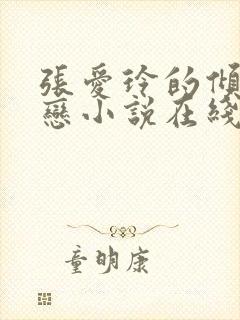 張愛玲的傾
戀小説在綫
童明康